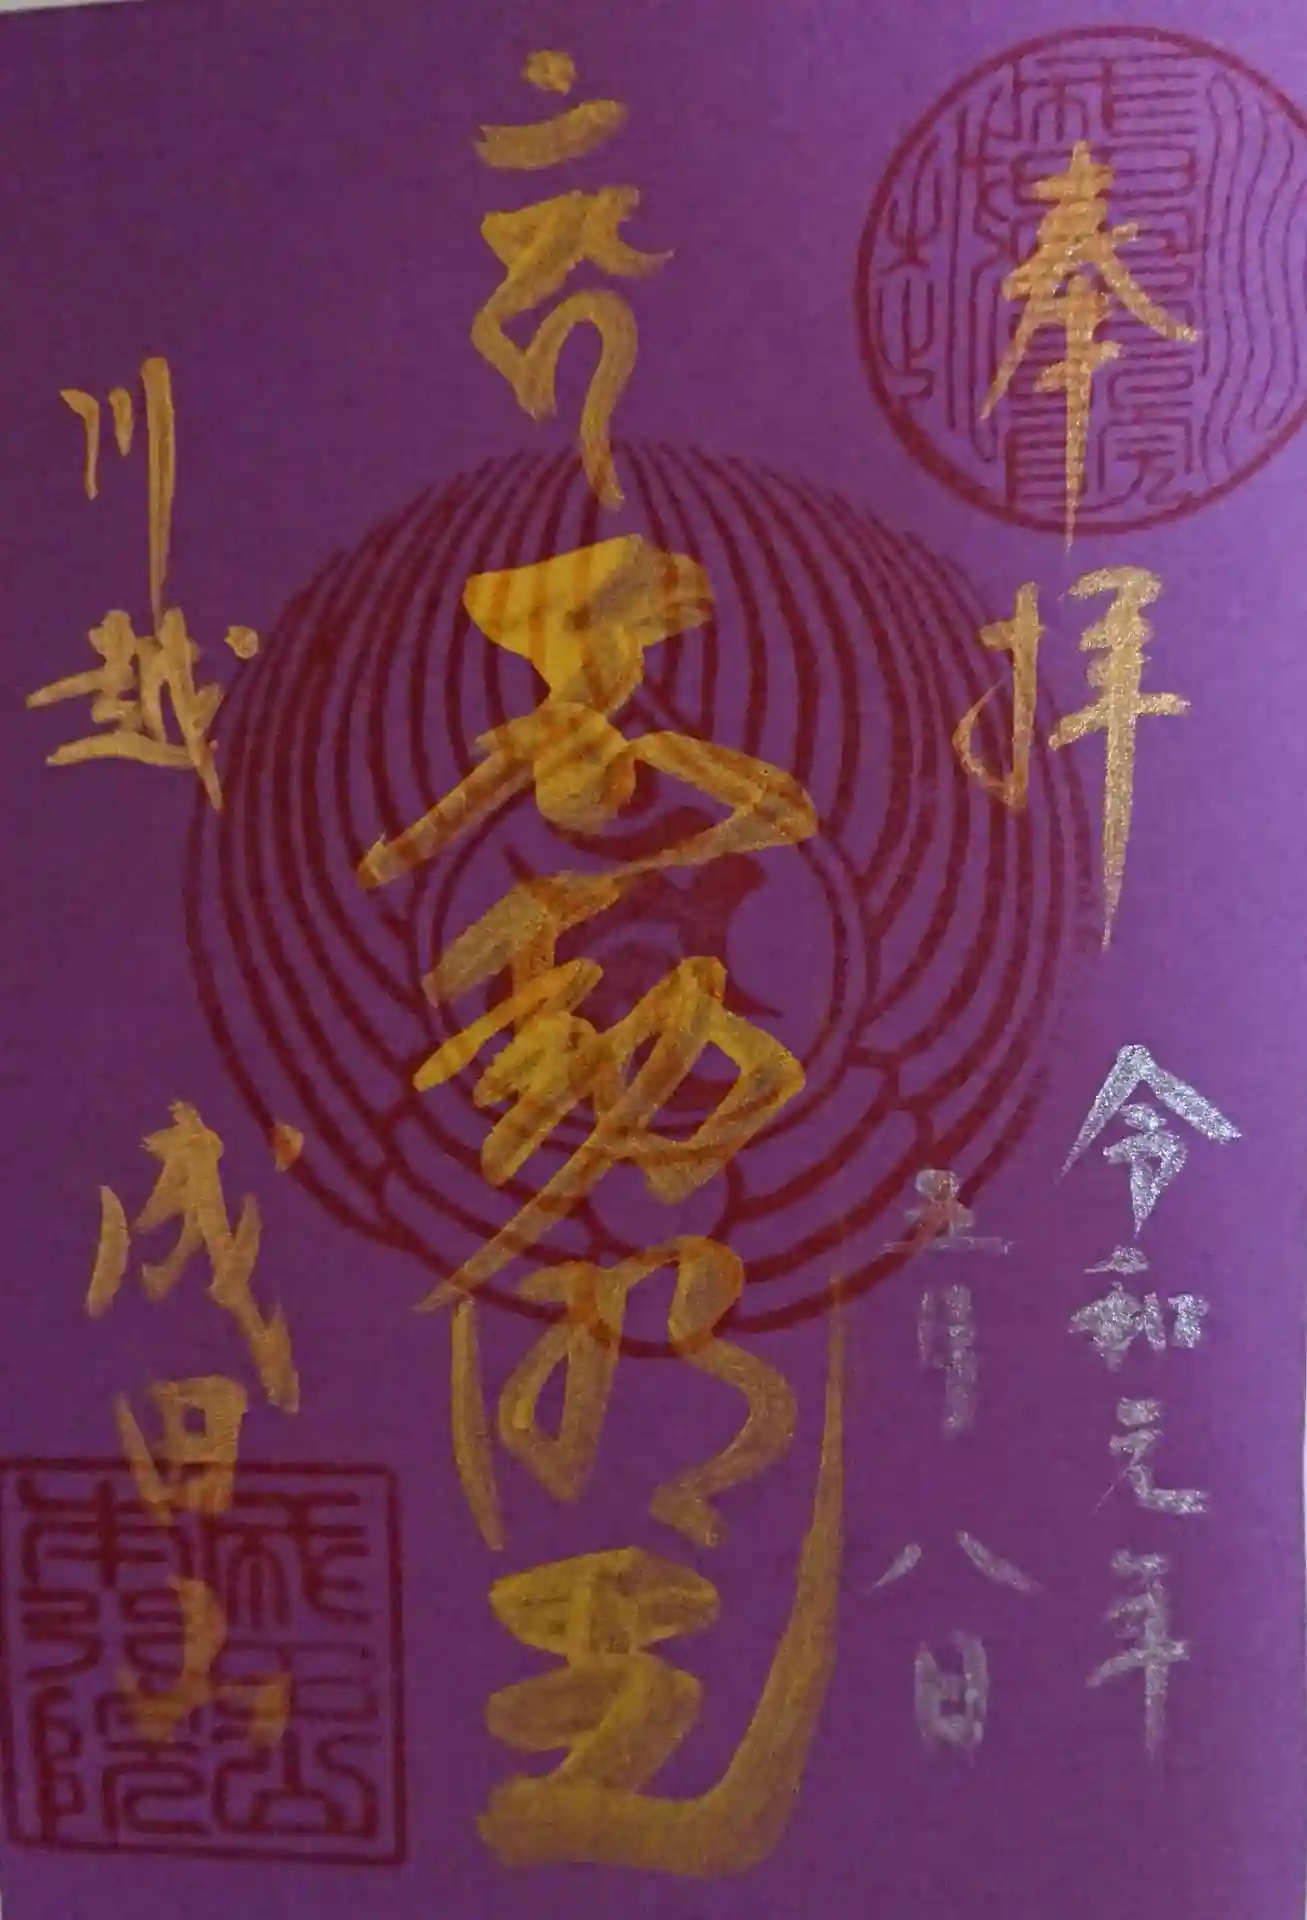 奉拝
令和元年
五月八日
不動明王
川越
成田山